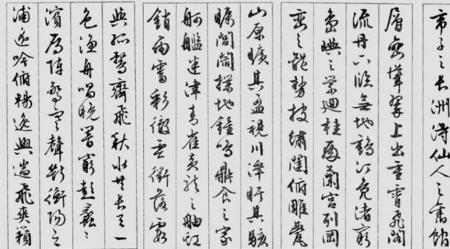 帝子之長洲得仙人之舊館
層巒聳翠上出重霄飛閣
流丹下臨無地鶴汀鳧渚窮
島嶼之縈迴桂殿蘭宮列岡
巒之體勢披繡闥俯雕甍
山原曠其盈視川澤盱其駭
矚閭閻撲地鐘鳴鼎食之家
舸艦迷津青雀黃龍之舳虹
銷雨霽彩徹雲衢落霞
與孤鶩齊飛秋水共長天一
色漁舟唱晚響窮彭蠡之
濱雁陣驚寒聲斷衡陽之
浦遙吟俯暢逸興遄飛爽籟